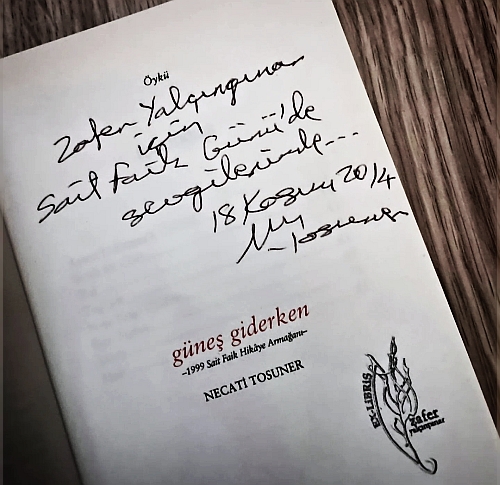 Öykü
Zafer Yalçınpınar
için
Sait Faik Günü'de
sevgilerimle...
18 Kasım 2014
N. Tosuner
güneş giderken
–1999 Sait Faik Hikâye Armağanı–
NECATİ TOSUNER
EX-LIBRIS
zafer
yalçınpınar